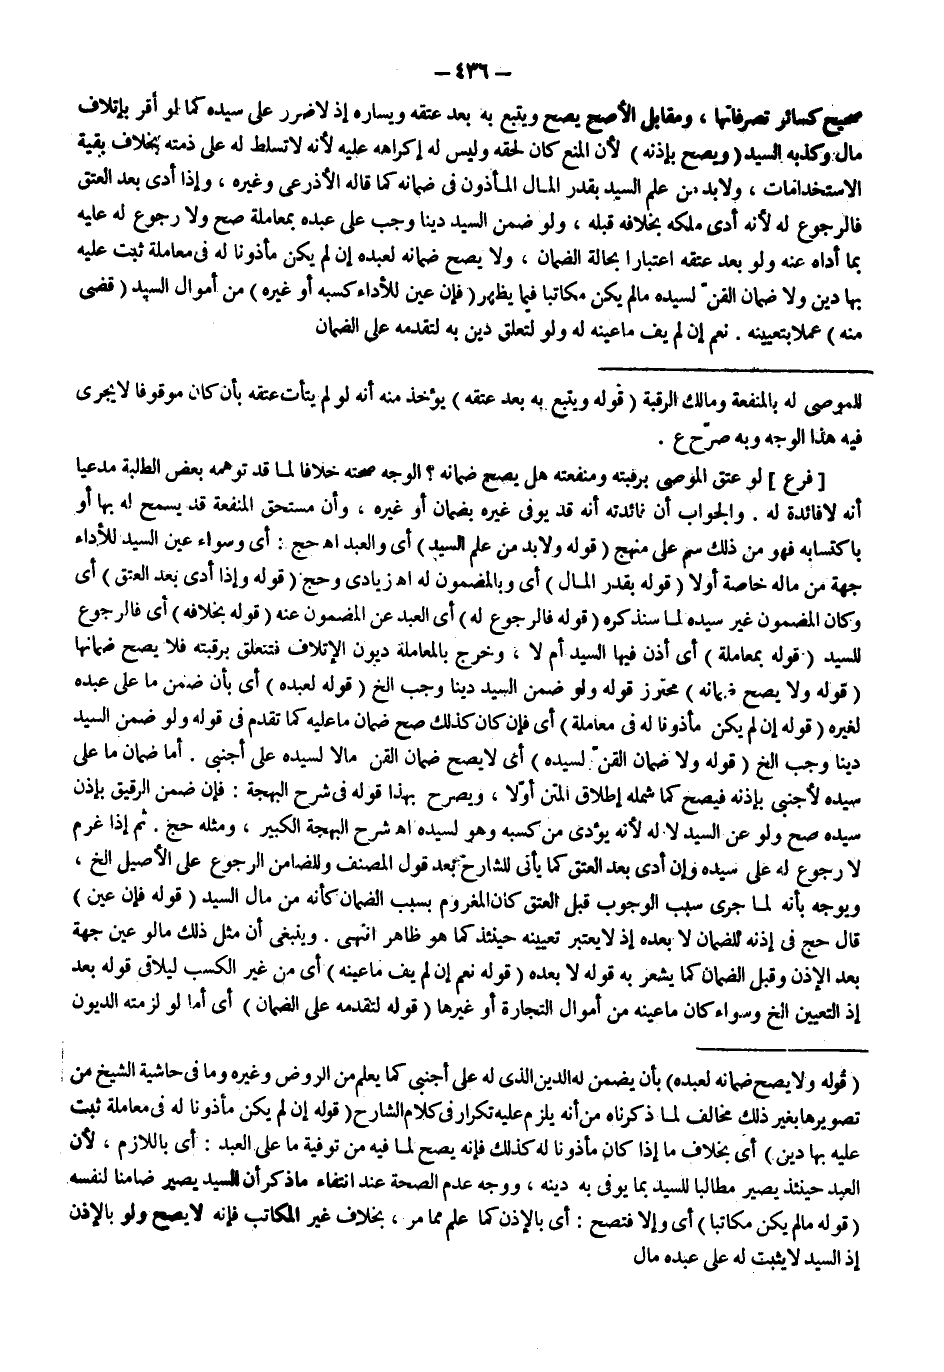 - ٤٣٦ -
صحيح كسائر تصرفاتها ، ومقابل الأصح يصح ويتبع به بعد عتقه ويساره إذ لاضرر على سيده كما لو أقر بإتلاف
مال وكذبه السيد ( ويصح بإذنه ) لأن المنع كان لحقه وليس له إكراهه عليه لأنه لاتسلط له على ذمته بخلاف بقية
الاستخدامات ، ولابد من علم السيد بقدر المال المأذون فى ضمانه كما قاله الأذرعى وغيره ، وإذا أدى بعد العتق
فالرجوع له لأنه أدى ملكه بخلافه قبله ، ولو ضمن السيد دينا وجب على عبده بمعاملة صح ولا رجوع له عليه
بما أداه عنه ولو بعد عتقه اعتبارا بحالة الضمان ، ولا يصح ضمانه لعبده إن لم يكن مأذونا له فى معاملة ثبت عليه
بها دين ولا ضمان القنّ لسيده مالم يكن مكاتبا فيما يظهر ( فإن عين للأداء كسبه أو غيره ) من أموال السيد ( قضى
منه ) عملا بتعيينه . نعم إن لم يف ماعينه له ولو لتعلق دين به لتقدمه على الضمان
للموصى له بالمنفعة ومالك الرقبة ( قوله ويتبع به بعد عتقه ) يؤخذ منه أنه لو لم يتأت عتقه بأن كان موقوفا لايجرى
فيه هذا الوجه وبه صرّح ع .
[ فرع ] لو عتق الموصى برقبته ومنفعته هل يصح ضمانه ؟ الوجه صحته خلافا لما قد توهمه بعض الطلبة مدعيا
أنه لافائدة له . والجواب أن فائدته أنه قد يوفى غيره بضمان أو غيره ، وأن مستحق المنفعة قد يسمح له بها أو
باكتسابه فهو من ذلك سم على منهج ( قوله ولابد من علم السيد ) أى والعبد اهـ حج : أى وسواء عين السيد للأداء
جهة من ماله خاصة أولا ( قوله بقدر المال ) أى وبالمضمون له اهـ زيادى وحج ( قوله وإذا أدى بعد العتق ) أى
وكان المضمون غير سيده لما سنذكره ( قوله فالرجوع له ) أى العبد عن المضمون عنه ( قوله بخلافه ) أى فالرجوع
للسيد ( قوله بمعاملة ) أى أذن فيها السيد أم لا ، وخرج بالمعاملة ديون الإتلاف فتتعلق برقبته فلا يصح ضمانها
( قوله ولا يصح ضمانه ) محترز قوله ولو ضمن السيد دينا وجب الخ ( قوله لعبده ) أى بأن ضمن ما على عبده
لغيره ( قوله إن لم يكن مأذونا له فى معاملة ) أى فإن كان كذلك صح ضمان ماعليه كما تقدم فى قوله ولو ضمن السيد
دينا وجب الخ ( قوله ولا ضمان القنّ لسيده ) أى لايصح ضمان القن مالا لسيده على أجنبى . أما ضمان ما على
سيده لأجنبى بإذنه فيصح كما شمله إطلاق المتن أوّلا ، ويصرح بهذا قوله فى شرح البهجة : فإن ضمن الرقيق بإذن
سيده صح ولو عن السيد لا له لأنه يؤدى من كسبه وهو لسيده اهـ شرح البهجة الكبير ، ومثله حج . ثم إذا غرم
لا رجوع له على سيده وإن أدى بعد العتق كما يأتى للشارح بعد قول المصنف وللضامن الرجوع على الأصيل الخ ،
ويوجه بأنه لما جرى سبب الوجوب قبل العتق كان المغروم بسبب الضمان كأنه من مال السيد ( قوله فإن عين )
قال حج فى إذنه للضمان لا بعده إذ لايعتبر تعيينه حينئذ كما هو ظاهر انتهى . وينبغى أن مثل ذلك مالو عين جهة
بعد الإذن وقبل الضمان كما يشعر به قوله لا بعده ( قوله نعم إن لم يف ماعينه ) أى من غير الكسب ليلاقى قوله بعد
إذ التعيين الخ وسواء كان ماعينه من أموال التجارة أو غيرها ( قوله لتقدمه على الضمان ) أى أما لو لزمته الديون
( قوله ولا يصح ضمانه لعبده ) بأن يضمن له الدين الذى له على أجنبى كما يعلم من الروض وغيره وما فى حاشية الشيخ من
تصويرها بغير ذلك مخالف لما ذكرناه من أنه يلزم عليه تكرار فى كلام الشارح ( قوله إن لم يكن مأذونا له فى معاملة ثبت
عليه بها دين ) أى بخلاف ما إذا كان مأذونا له كذلك فإنه يصح لما فيه من توفية ما على العبد : أى باللازم ، لأن
العبد حينئذ يصير مطالبا للسيد بما يوفى به دينه ، ووجه عدم الصحة عند انتفاء ماذكر أن السيد يصير ضامنا لنفسه
( قوله مالم يكن مكاتبا ) أى وإلا فتصح : أى بالإذن كما علم مما مر ، بخلاف غير المكاتب فإنه لايصح ولو بالإذن
إذ السيد لايثبت له على عبده مال